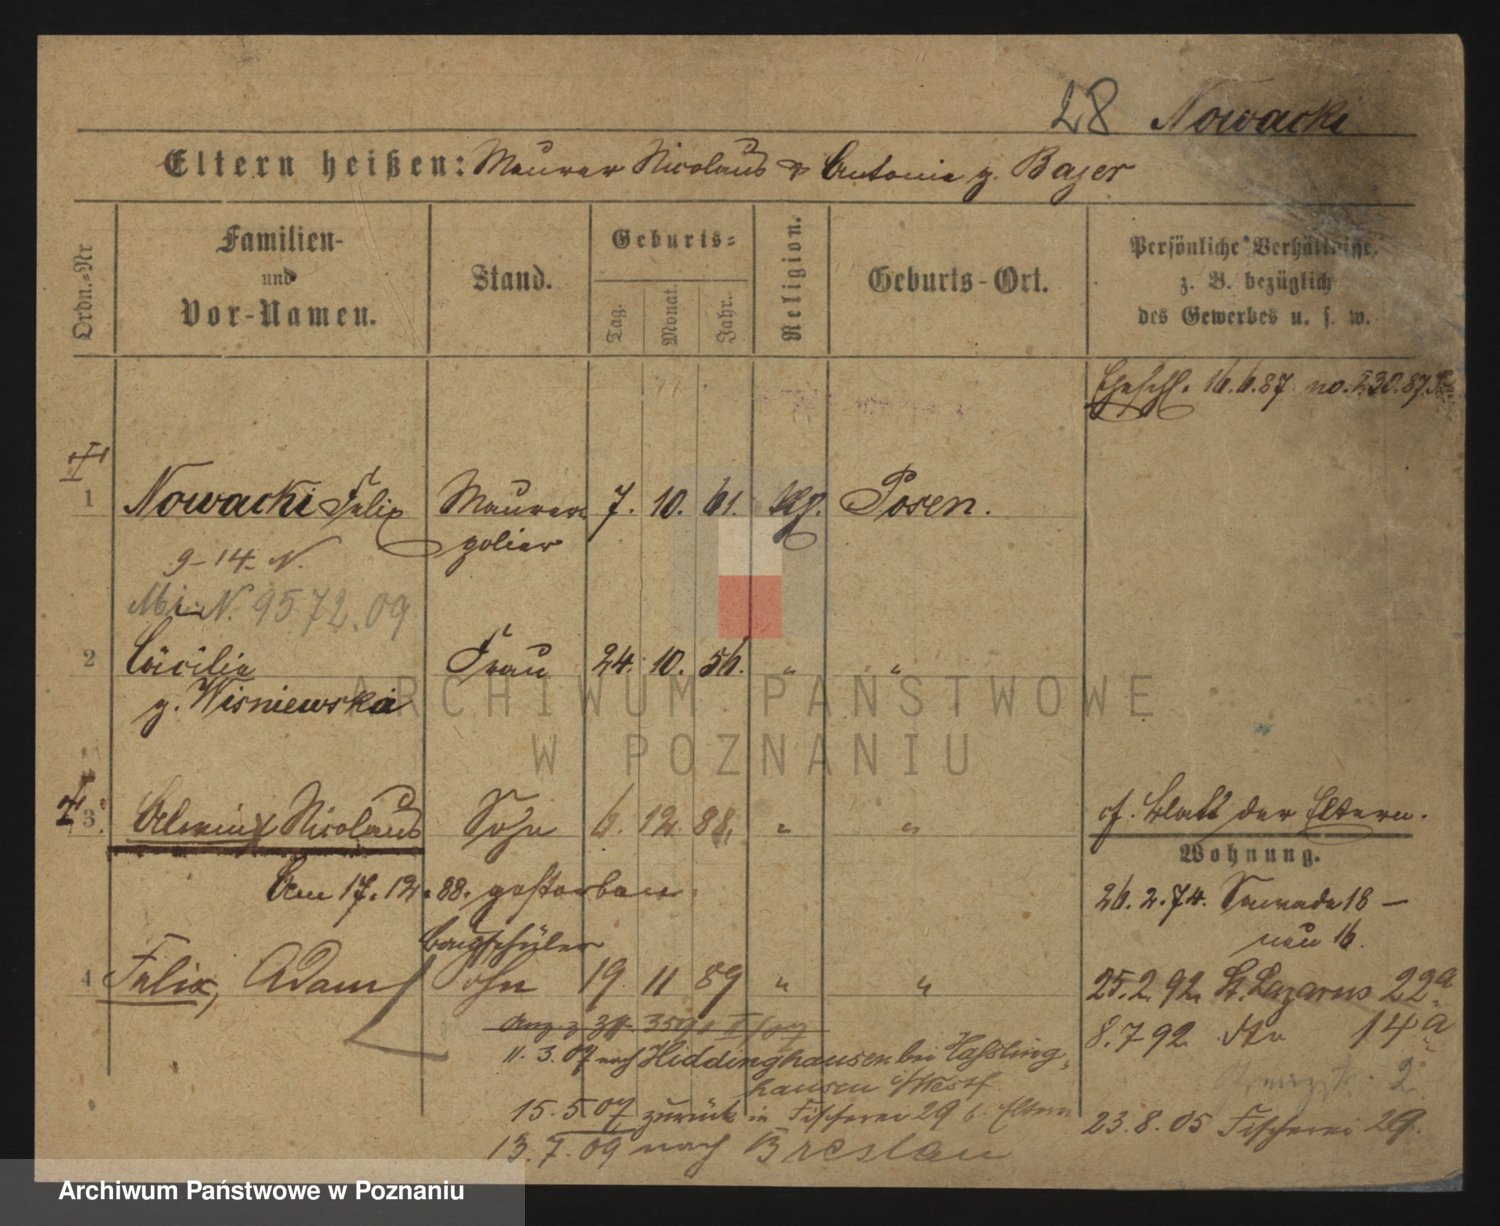 28 Nowacki
Eltern heißen: Maurer Nicolaus & Antonie g. Bajer
Ordn.-Nr
Familien-
und
Vor-Namen.
Stand.
Geburts-
Tag. Monat. Jahr.
Religion.
Geburts-Ort.
Persönliche Verhältnisse,
z. B. bezüglich
des Gewerbes u. s. w.
Eheschl. 16.6.87 no. 230.87.
1 Nowacki Felix Maurer- 7. 10. 61. Posen.
polier
9-14- N.
N. 9572.09
2 Cäcilie Frau 24. 10. 56. " "
g. Wisniewska
3 Nicolaus Sohn 6. 12. 88. " "
cf. Blatt der Eltern.
Wohnung.
Am 17.12.88. gestorben.
26.2.74. 18 –
neu 16.
Baugschüler
4 Felix, Adam Sohn 19. 11 89 " "
25.2.92. St. Lazarus 22a
8.7.92 dto 14a
11.3.07 nach Hiddinghausen bei Hassling-
hausen i/Westf
2.
15.5.07 zurück in Fischerei 29 b. Eltern
23.8.05 Fischerei 29.
13.7.09 nach Breslau
ARCHIWUM PAŃSTWOWE
W POZNANIU
Archiwum Państwowe w Poznaniu